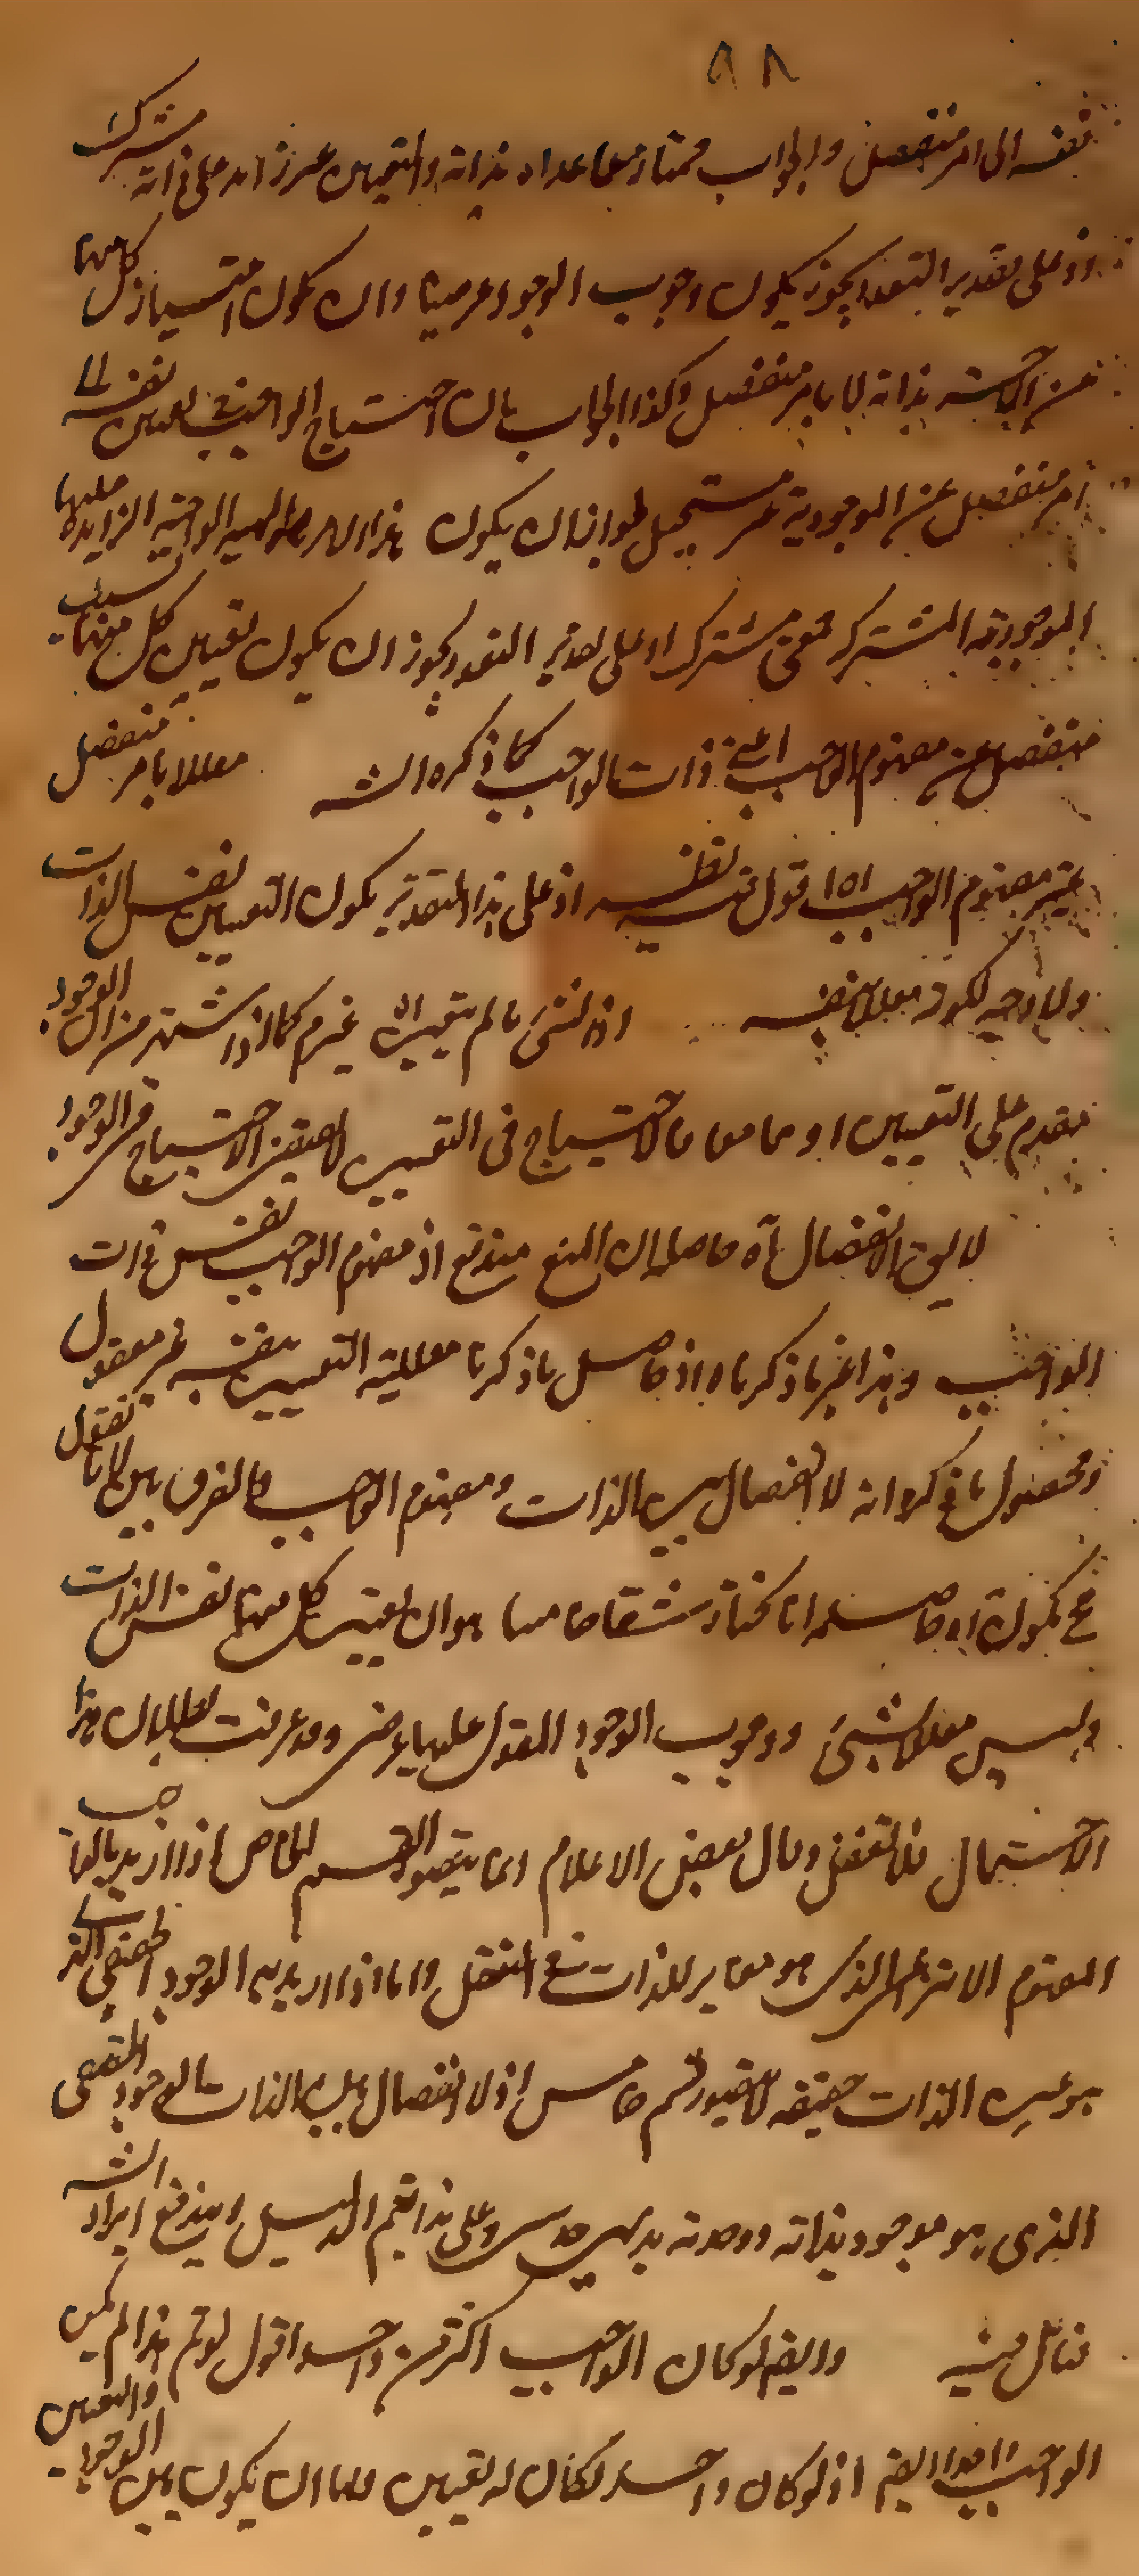 ٩٨
نفسه الى امر منفصل والجواب ممتاز عما عداه بذاته والتعين غير زائد على ذاته مشترك
اذ على تقدير التعدد يجوز يكون وجوب الوجود عرضيا وان يكون امتياز كل منهما
من الآخر بذاته لا بامر منفصل وكذا الجواب بان احتياج الواجب في تعين نفسه الى
امر منفصل عن الموجودية غير مستحيل لجواز ان يكون هذا الامر الماهية الواجبة الزايدة عليها
الموجودية المشتركة معنى مشترك اذ على تقدير التعدد يجوز ان يكون تعين كل منهما
منفصل عن مفهوم الواجب اعني ذات الواجب كما ذكره الش معللا بامر منفصل
غير مفهوم الواجب اه اقول فيه نظر اذ على هذا التقدير يكون التعين نفس الذات
ولا وجه لكونه معللا بنفسه اذ الشئ ما لم يتعين اه غير كما اذا اشتهر من ان الوجود
مقدم على التعين او فالاحتياج في التعين لا يقتضي الاحتياج في الوجود
لا الانفصال آه حاصله ان المنع مندفع اذ مفهوم الواجب نفس ذات
الواجب وهذا غير ما ذكرناه اذ حاصل ما ذكرنا معللية التعين بنفسه غير معقول
ومحصول ما ذكر انه لا انفصال بين الذات ومفهوم الواجب والفرق بين كلامنا نقول
ح يكون اه حاصله انا نختار شقا خامسا هو ان تعين كل منهما نفس الذات
وليس معللا بشئ ووجوب الوجود المقول عليهما عرضي وقد عرفت بطلان هذا
الاحتمال فلا تغفل وقال بعض الاعلام انما يتصور القسم الخامس اذا اريد بالواجب
المفهوم الانتزاعي الذي هو مغاير للذات في العقل واما اذا اريد به الوجود الحقيقي الذي
هو عين الذات حقيقة لا يتصور قسم خامس اذ لا انفصال بين الذات والوجود الحقيقي
الذي هو موجود بذاته ووحدته بديهي حدسي وعلى هذا يتم الدليل ويندفع ايراد الش
فتامل فيه وايضا لو كان الواجب اكثر من واحد اقول لو تم هذا لم يكن
الواجب واحدا ايضا اذ لو كان واحد لكان له تعين فاما ان يكون بين الوجود والتعين